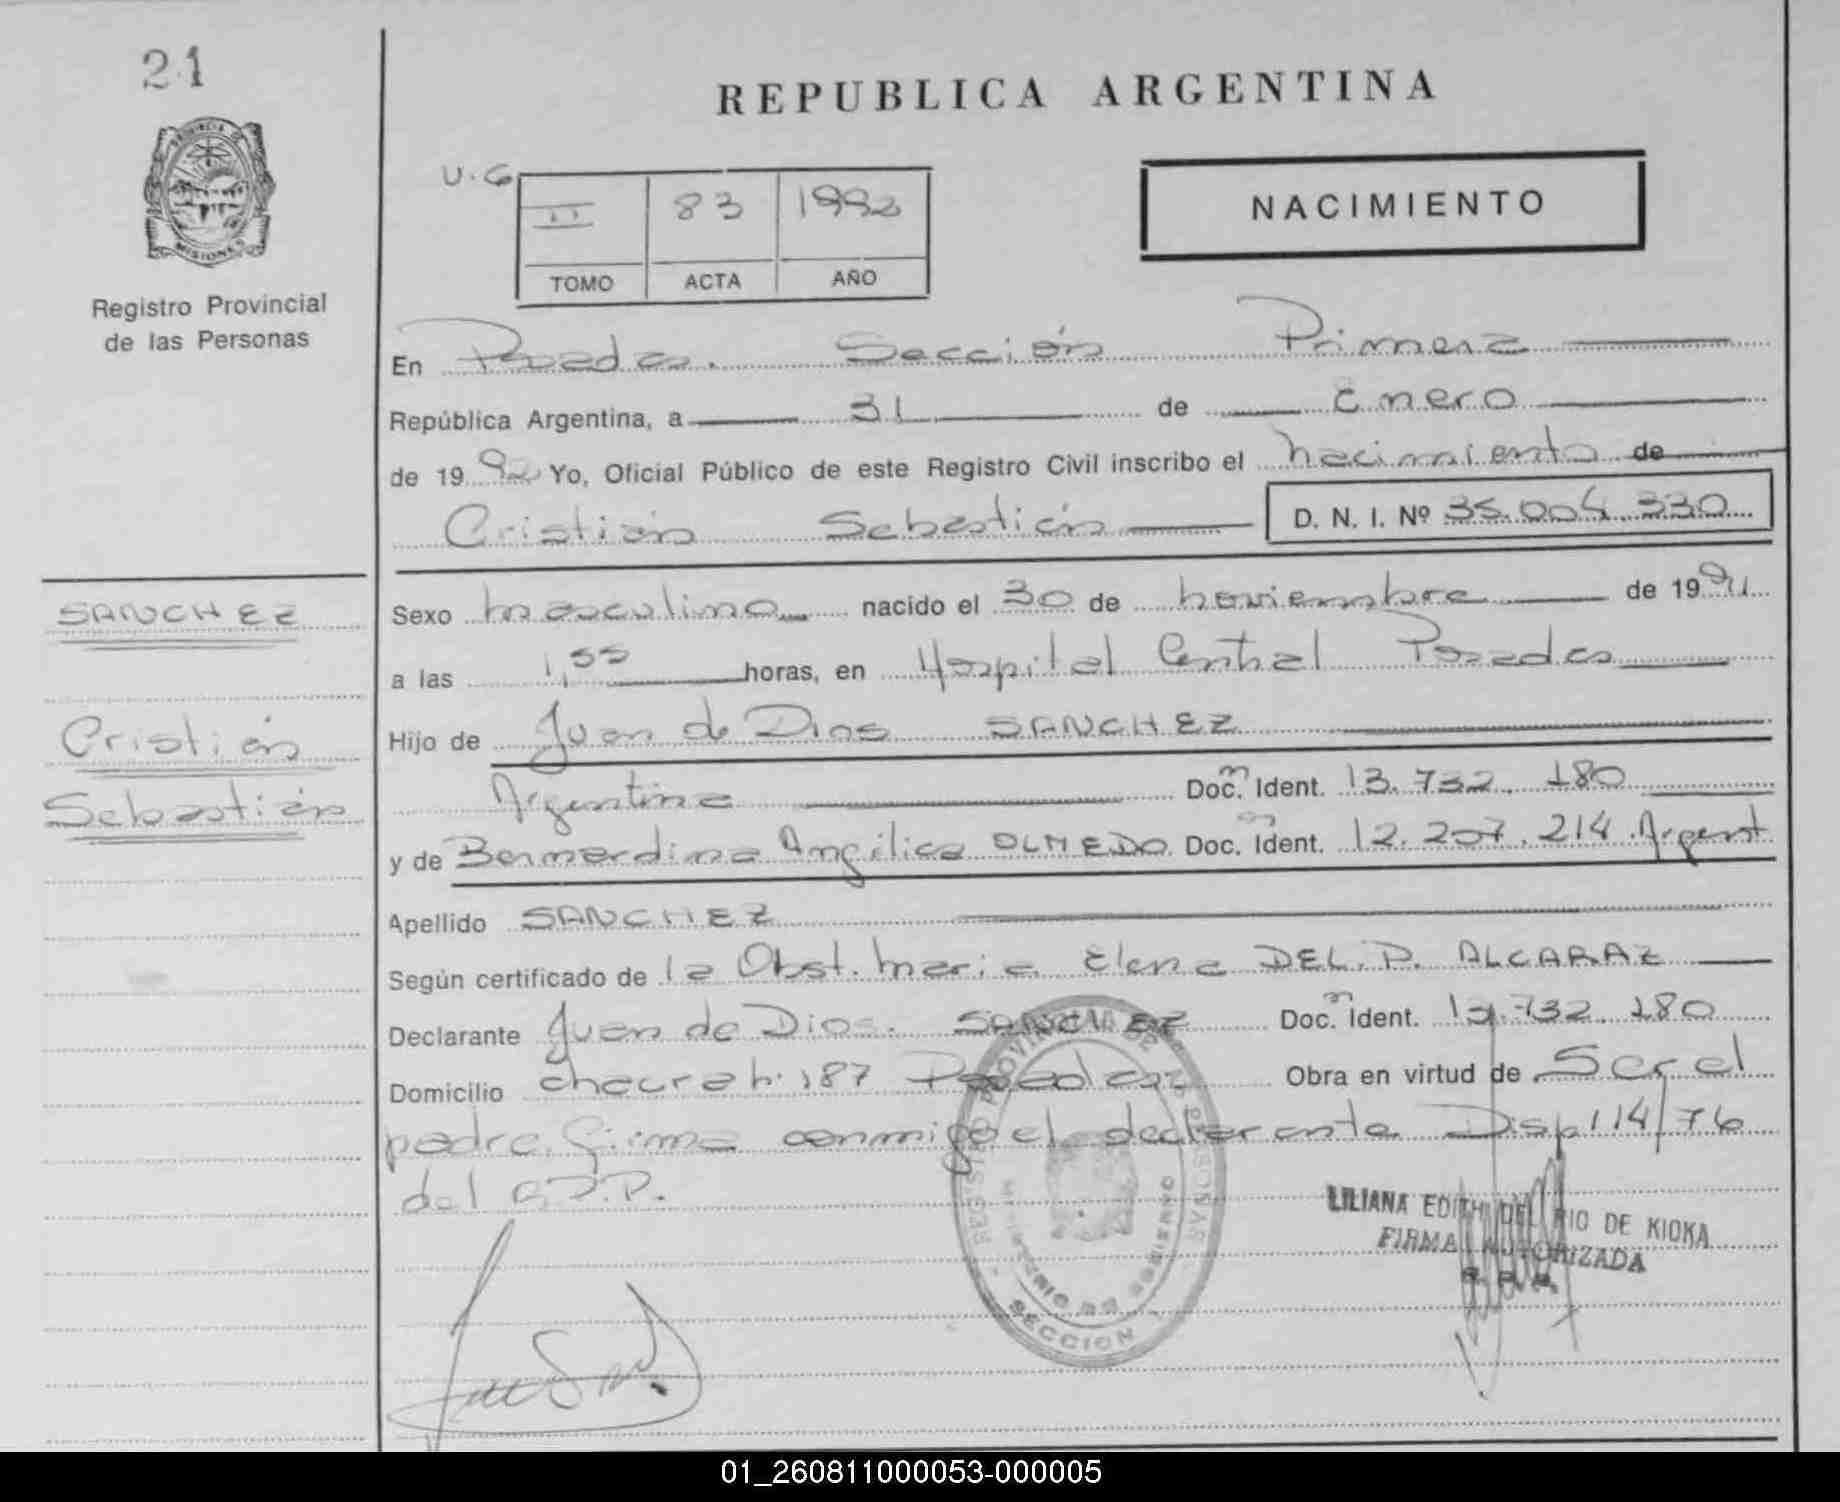 21
REPUBLICA ARGENTINA
PROVINCIA DE
MISIONES
Registro Provincial
de las Personas
U.G
II 83 1992
TOMO ACTA AÑO
NACIMIENTO
En Posadas. Sección Primera
República Argentina, a 31 de Enero
de 1992 Yo, Oficial Público de este Registro Civil inscribo el nacimiento de
Cristián Sebastián D. N. I. Nº 35.004.330
SANCHEZ
Cristián
Sebastián
Sexo masculino nacido el 30 de noviembre de 1991
a las 1,55 horas, en Hospital Central Posadas
Hijo de Juan de Dios SANCHEZ
Argentina Doc. Ident. 13.732.180
y de Bernardina Angélica OLMEDO Doc. Ident. 12.207.214 Argent.
Apellido SANCHEZ
Según certificado de la Obst. María Elena DEL.P. ALCARAZ
Declarante Juan de Dios SANCHEZ Doc. Ident. 13.732.180
Domicilio chacra h. 187 Posadas Obra en virtud de Ser el
padre. Firma conmigo el declarante Disp 114/76
del R.P.P.
LILIANA EDITH DEL RIO DE KIOKA
FIRMA AUTORIZADA
REGISTRO PROVINCIAL DE
MINISTERIO DE GOBIERNO
SECCION
01_260811000053-000005